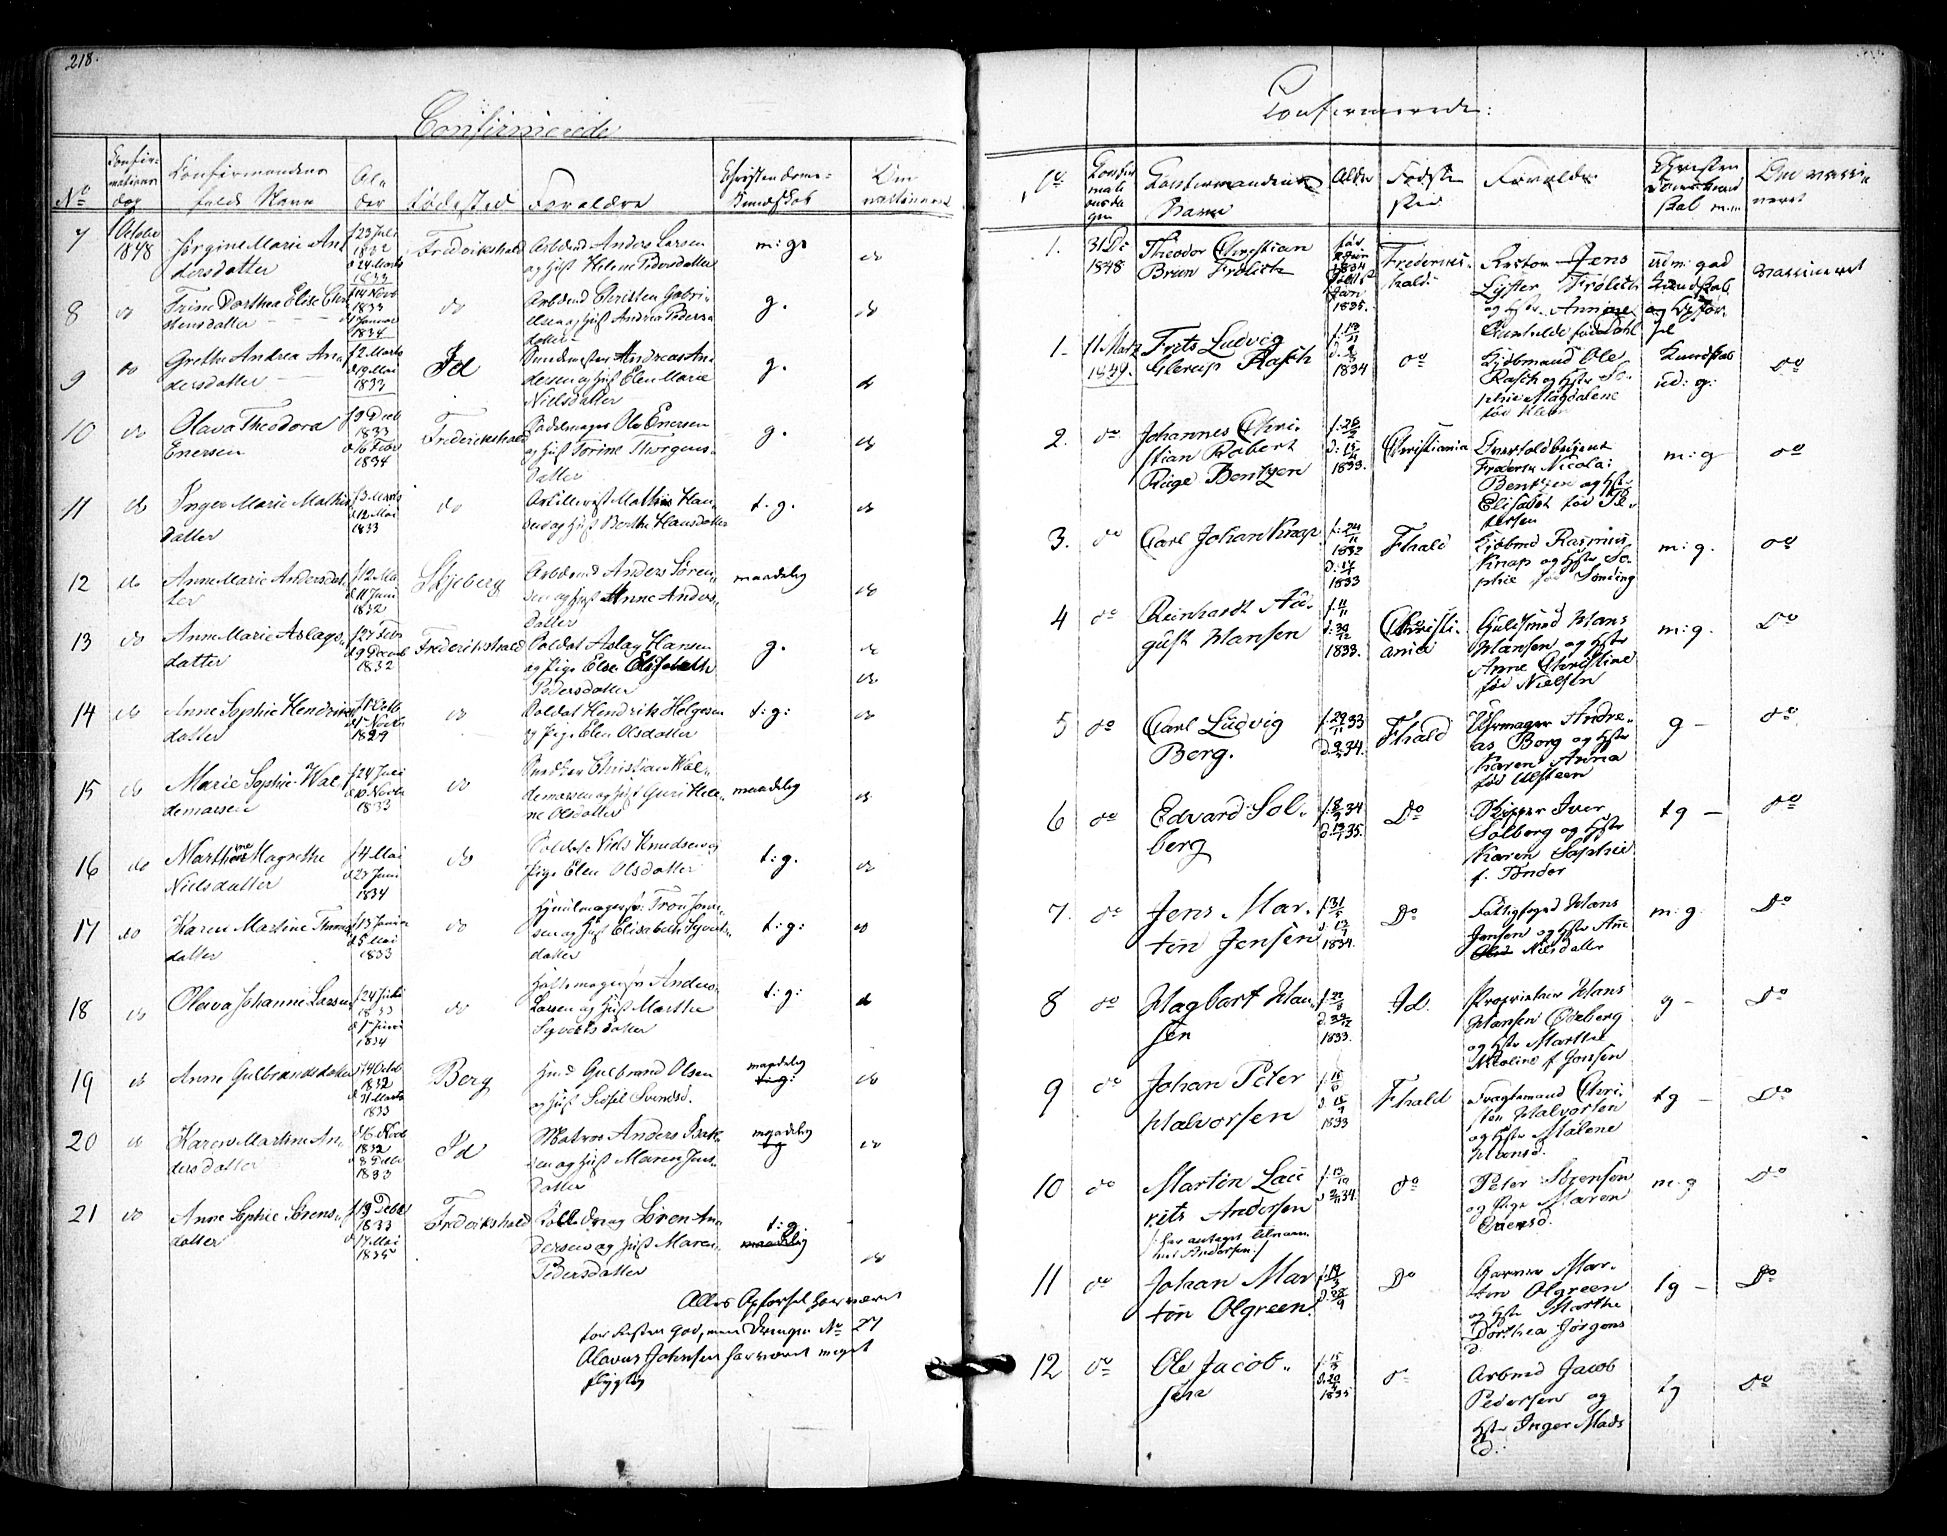 218.
Confirmerede
No
Confir-
mations
dag
Confirmandens
fulde Navn
Al-
der
Fødested
Forældre
Christendoms-
Kundskab
Om
vaccineret
7
1 October
1848
Jørgine Marie An-
dersdatter
f 23 Juli
1832
d 24 Marts
1833
Fredrikshald
Arbdmd Anders Larsen
og Hust Helene Pedersdatter
m: g:
do
8
do
Trine Dorthea Elise Chri-
stensdatter
f 14 Novb
1833
d 1 Januar
1834
do
Arbdmd Christen Gabri-
elsen og Hust Andrea Peders-
datter
g.
do
9
do
Grethe Andrea An-
dersdatter
f 2 Marts
d 19 Mai
1833
Id
Andreas An-
dersen og Hust Elen Marie
Nielsdatter
g.
do
10
do
Olava Theodora
Enersen
f 9 Decb
1833
d 16 Febr
1834
Fredrikshald
Sadelmager Ole Enersen
og Hust Torine Thorgens-
datter
g.
do
11
do
Inger Marie Mathis-
datter
f 3 Marts
d 12 Mai
1833
do
Artillerist Mathis Han-
sen og Hust Berthe Hansdatter
t. g.
do
12
do
Anne Marie Andersdat-
ter
f 12 Ma
d 11 Juni
1832
Skjeberg
Arbdmd Anders Søren-
sen og Hust Anne Anders-
datter
maadelig
do
13
do
Anne Marie Aslags-
datter
f 27 Febr
d 9 Decmb
1832
Fredrikshald
Soldat Aslag Hansen
og Pige Else Elisabeth
Pedersdatter
g.
do
do
14
do
Anne Sophie Hendriks-
datter
f 1 Octb
d 1 Novbr
1829
do
Soldat Hendrik Helgesen
og Pige Elen Olsdatter
t: g:
do
15
do
Marie Sophie Wal-
demarsen
f 24 Juli
d 10 Novbr
1833
do
Snedker Christian Wal-
demarsen og Hust Guri Hele-
ne Olsdatter
maadelig
do
16
do
Marthine Magrethe
Nielsdatter
f 4 Mai
d 27 Juni
1834
do
Soldat Niels Knudsen og
Pige Elen Olsdatter
t: g.
do
17
do
Karen Martine Trons-
datter
f 13 Januar
d 5 Mai
1833
do
Hjulmagersv: Tron Jon-
sen og Hust Elisabeth Syverts-
datter
t: g:
do
18
do
Olava Johanne Larsen
f 24 Juli
1833
d 1 Juni
1834
do
Anders
Larsen og Hust Marthe
Syvertsdatter
t: g:
do
19
do
Anne Gulbrandsdatter
f 14 Octob
1832
d 31 Marts
1833
Berg
Hmd Gulbrand Olsen
og Hust Sidsel Svendsd.
maadelig
t: g:
do
20
do
Karen Martine An-
dersdatter
f 16 Novb
1832
1833
Id
Matros Anders Isak-
sen og Hust Maren Jens-
datter
maadelig
do
21
do
Anne Sophie Sørens-
datter
f 19 Debr
1833
d 17 Mai
1835
Fredrikshald
Søren An-
dersen og Hust Maren
Pedersdatter
t: g.
maadelig
do
Alles Opførsel har været
for Resten god, men Drengen No 27
Olavus Johnsen har været meget
flygtig
Confirmerede:
No
Confir-
mati-
onsda-
gen
Confirmandens
Navn
Alder
Føde
sted
Forældre
Christen
doms Kund
skab m.m.
Om vacci-
neret
1.
31 De
1848
Theodor Christian
Brun Frølich
1834
døbt
Jan
1835.
Frederiks-
hald.
Pastor Jens
Lyster Frølich
og Hstr. Annine
Gunhilde fød Dahl
udm: god
Kundskab
og Opfør-
sel
vaccineret
1.
11 Marts
1849.
Frits Ludvig
Glerup Rasch
1834
do
Kjøbmand Ole
Rasch og Hstr So-
phie Magdalene
Kundskab
ud: g:
do
2.
do
Johannes Chri-
stian Robert
Rüge Bentzen
1833.
Christiania
Frederik Nicolai
Bentzen og Hstr
Elisabet fød Pe-
tersen
m: g
do
3.
do
Carl Johan Knap
f. 24/11
1832
d. 17/4
1833
Fhald
Kjøbmd Rasmus
Knap og Hstr So-
phie fød Sonding
m: g.
do
4
do
Reinhardt Au-
gust Hansen
1833.
Christi-
ania
Guldsmed Hans
Hansen og Hstr
Anne Christine
fød Nielsen
m: g.
do
5
do
Carl Ludvig
Berg.
Fhald
Uhrmager Andre-
as Berg og Hstr
Karen Anna
fød Ulsteen
g -
do
6
do
Edvard Sol-
berg
Do
Skipper Iver
Solberg og Hstr
Karen Sophie
f. Tønder
tg -
do
7.
do
Jens Mar-
tin Jensen
f. 31/5
1834.
Do
Fattigfoged Hans
Jensen og Hstr Ane
Nielsdatter
m: g.
Do
8
do
Hagbart Han-
sen
1833.
Id.
Proprietær Hans
Hansen
og Hstr Marthe
Nicoline f Jonssen
g -
Do
9
do
Johan Peter
Halvorsen
1833
Fhald
Fragtemand Chri-
sten Halvorsen
og Hstr Malene
Hansd.
tg -
Do
10
do
Martin Lau
rits Andersen
/: har antaget tilnav-
net Andersen :/
do
Peter Sørensen
og Pige Maren
Enersd.
m: g
Do
11
do
Johan Mar
tin Olgreen
Do
Garver Mar-
tin Olgreen
og Hstr Marthe
Dorthea Jørgens
d.
tg -
Do
12
do
Ole Jacob-
sen
1835
do
Arbmd Jacob
Pedersen og
Hstr Inger Mads
d:
tg
Do